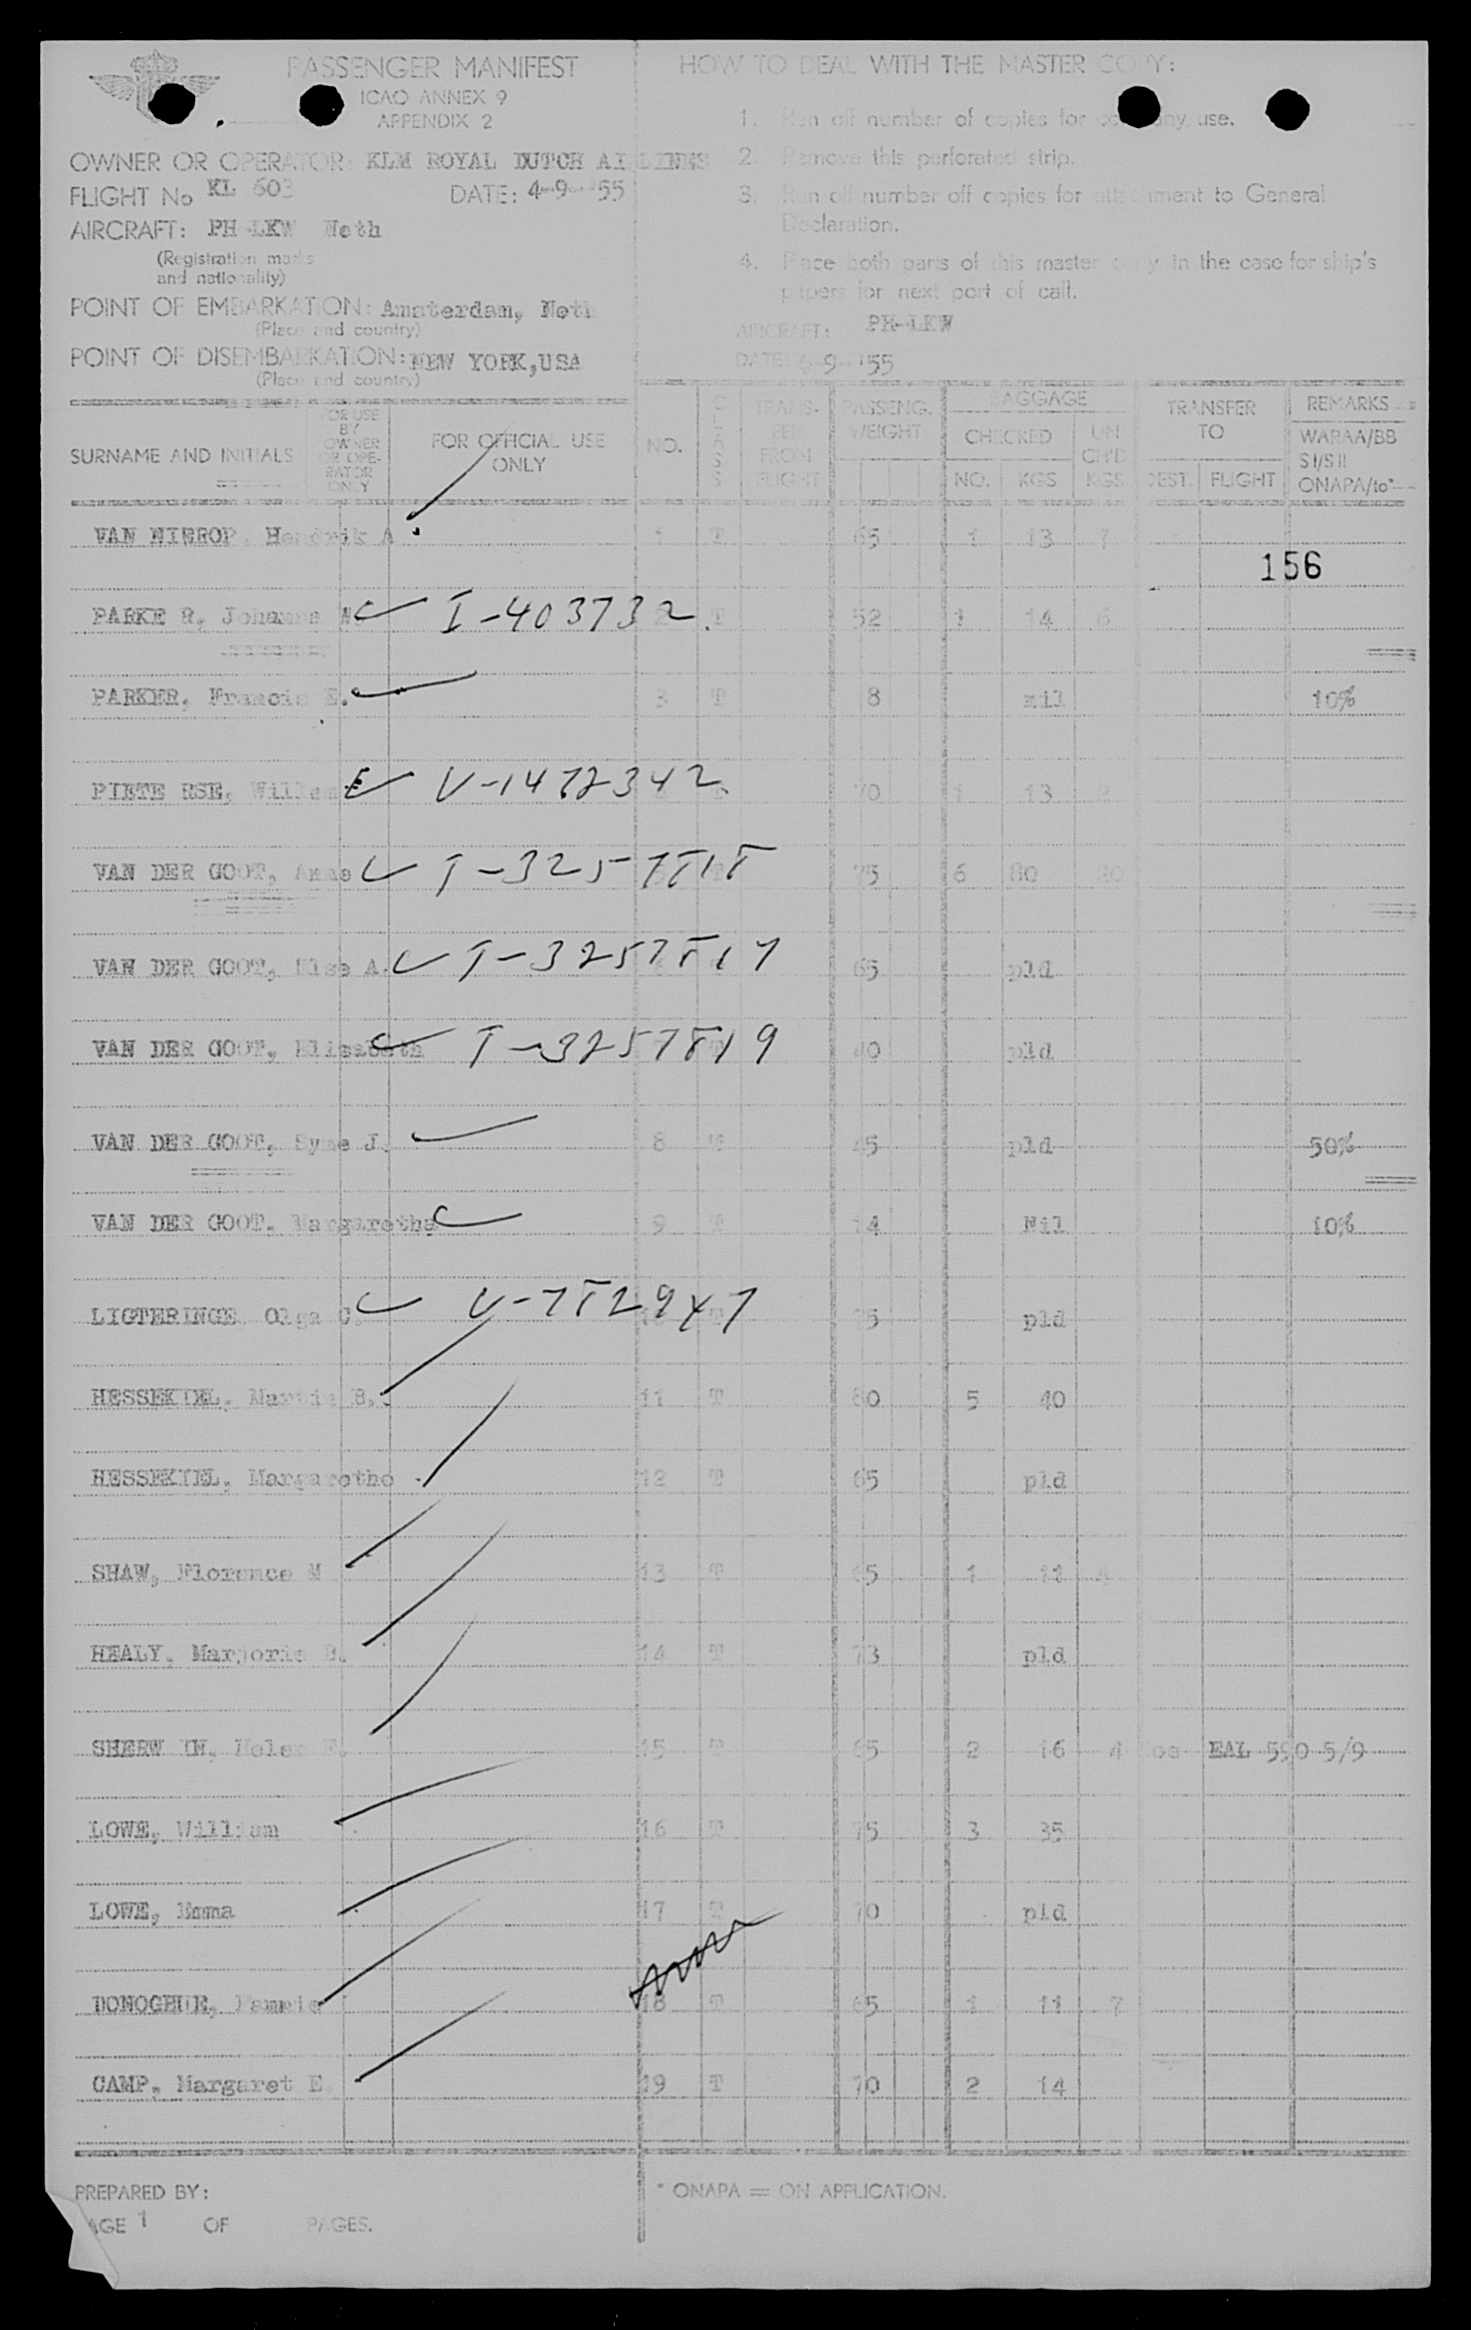 PASSENGER MANIFEST
ICAO ANNEX 9
APPENDIX 2
OWNER OR OPERATOR: KLM ROYAL DUTCH AIRLINES
FLIGHT No KL 603 DATE: 4-9-'55
AIRCRAFT: PH-LKW Neth
(Registration marks
and nationality)
POINT OF EMBARKATION: Amsterdam, Neth
(Place and country)
POINT OF DISEMBARKATION: NEW YORK,USA
(Place and country)
HOW TO DEAL WITH THE MASTER COPY:
1. Run off number of copies for company use.
2. Remove this perforated strip.
3. Run off number off copies for attachment to General
Declaration.
4. Place both parts of this master copy in the case for ship's
papers for next port of call.
AIRCRAFT: PH-LKW
DATE: 4-9-'55
SURNAME AND INITIALS
FOR USE
BY
OWNER
OR OPE-
RATOR
ONLY
FOR OFFICIAL USE
ONLY
NO.
CLASS
TRANS-
FER
FROM
FLIGHT
PASSENG.
WEIGHT
BAGGAGE
CHECKED
NO. KGS
UN
CH'D
KGS
TRANSFER
TO
DEST. FLIGHT
REMARKS
WARAA/BB
SI/SII
ONAPA/to*
VAN Hendrik A. 1 T 65 1 13 7
156
PARKER, Johanna W. I-403732. 2 T 52 1 14 6
PARKER, Francis E. 3 T 8 nil 10%
PIETERSE, Willem V-1472342. 70 1 13
VAN DER GOOT, T-3257818 T 75 6 80 20
VAN DER GOOT, Else A. T-3257817 65 pld
VAN DER GOOT, Elisabeth T-3257819 7 T 40 pld
VAN DER GOOT, Syne J. 8 T 45 pld 50%
VAN DER GOOT, Margaretha 9 T 14 Nil 10%
LIGTERINGE, Olga C. 10 T 75 pld
HESSEKIEL, B. 11 T 80 5 40
HESSEKIEL, Margarethe 12 T 65 pld
SHAW, Florence M 13 T 65 1 11 4
HEALY, Marjorie 14 T 73 pld
SHERWIN, Helen 15 T 65 2 16 4 EAL 590 5/9
LOWE, William 16 T 75 3 35
LOWE, Emma 17 T 70 pld
DONOGHUE, 18 T 65 1 11 7
CAMP, Margaret E. 19 T 70 2 14
PREPARED BY:
PAGE 1 OF PAGES.
* ONAPA = ON APPLICATION.